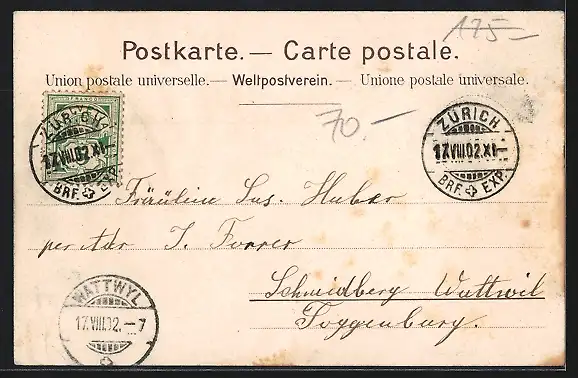 175–
Postkarte. — Carte postale.
Union postale universelle. — Weltpostverein. — Unione postale universale.
70.–
FRANCO
ZÜRICH
17.VIII.02.XI–
BRF. EXP.
ZÜRICH
17.VIII.02.XI–
BRF. EXP.
Fräulein Sus. Huber
per Adr J. Forrer
Schmidberg Wattwil
Toggenburg.
WATTWYL
17.VIII.02.–7